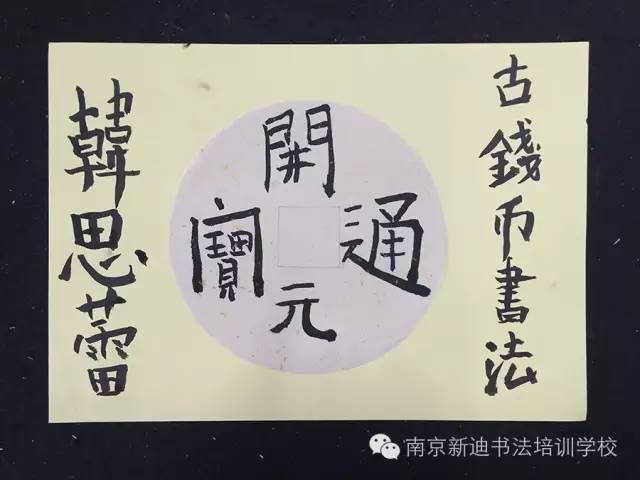 古錢币書法
開元通寳
韓思蕾
南京新迪书法培训学校